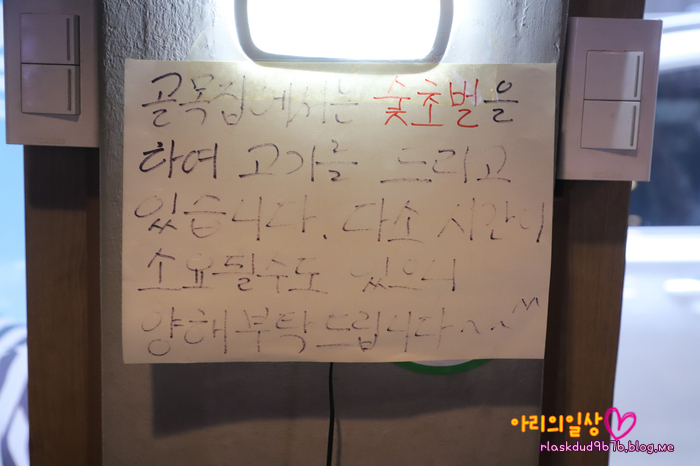 골목집에서는 숯초벌을
하여 고기를 드리고
있습니다. 다소 시간이
소요될수도 있으니
양해부탁드립니다^^
아리의일상
rlaskdud9b7b.blog.me